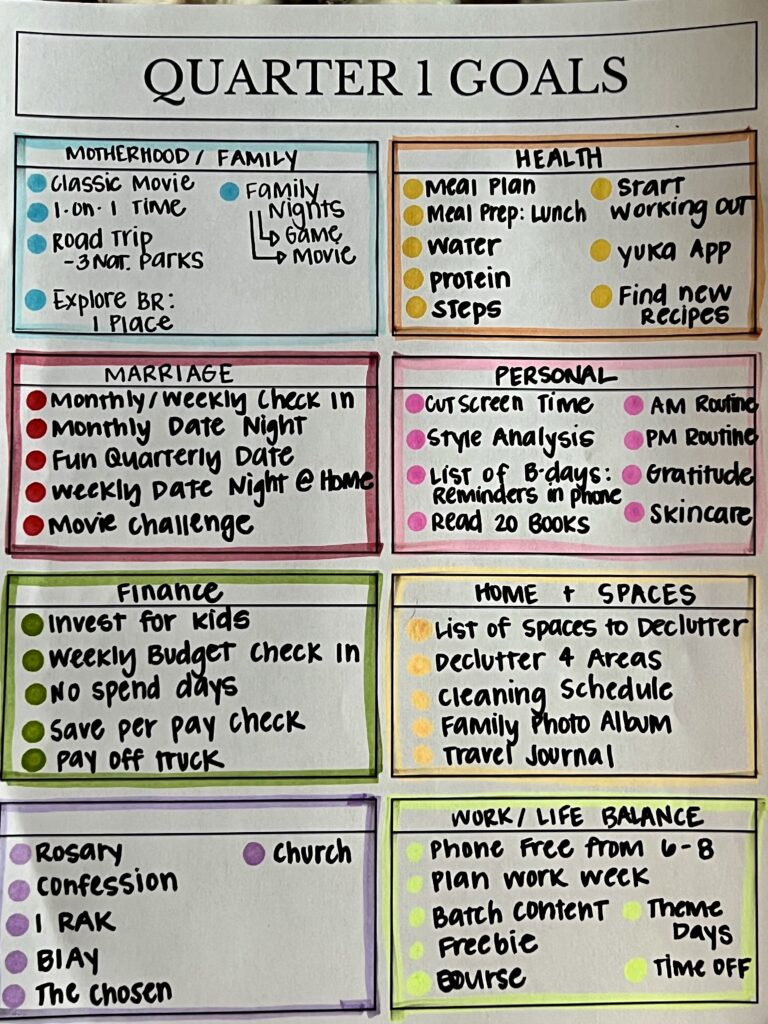 QUARTER 1 GOALS
MOTHERHOOD / FAMILY
Classic Movie
1-on-1 Time
Road Trip
-3 Nat. Parks
Explore BR:
1 Place
Family
Nights
Game
Movie
HEALTH
Meal Plan
Meal Prep: Lunch
Water
Protein
Steps
Start
Working Out
Yuka App
Find New
Recipes
MARRIAGE
Monthly/Weekly Check In
Monthly Date Night
Fun Quarterly Date
Weekly Date Night @ Home
Movie Challenge
PERSONAL
Cut Screen Time
Style Analysis
List of B-days:
Reminders in phone
Read 20 Books
AM Routine
PM Routine
Gratitude
Skincare
Finance
Invest for kids
Weekly Budget Check In
No spend days
Save per pay check
Pay off truck
HOME + SPACES
List of Spaces to Declutter
Declutter 4 Areas
Cleaning Schedule
Family Photo Album
Travel Journal
Rosary
Confession
1 RAK
BIAY
The Chosen
Church
WORK / LIFE BALANCE
Phone Free from 6-8
Plan Work Week
Batch Content
Freebie
Bourse
Theme
Days
Time OFF